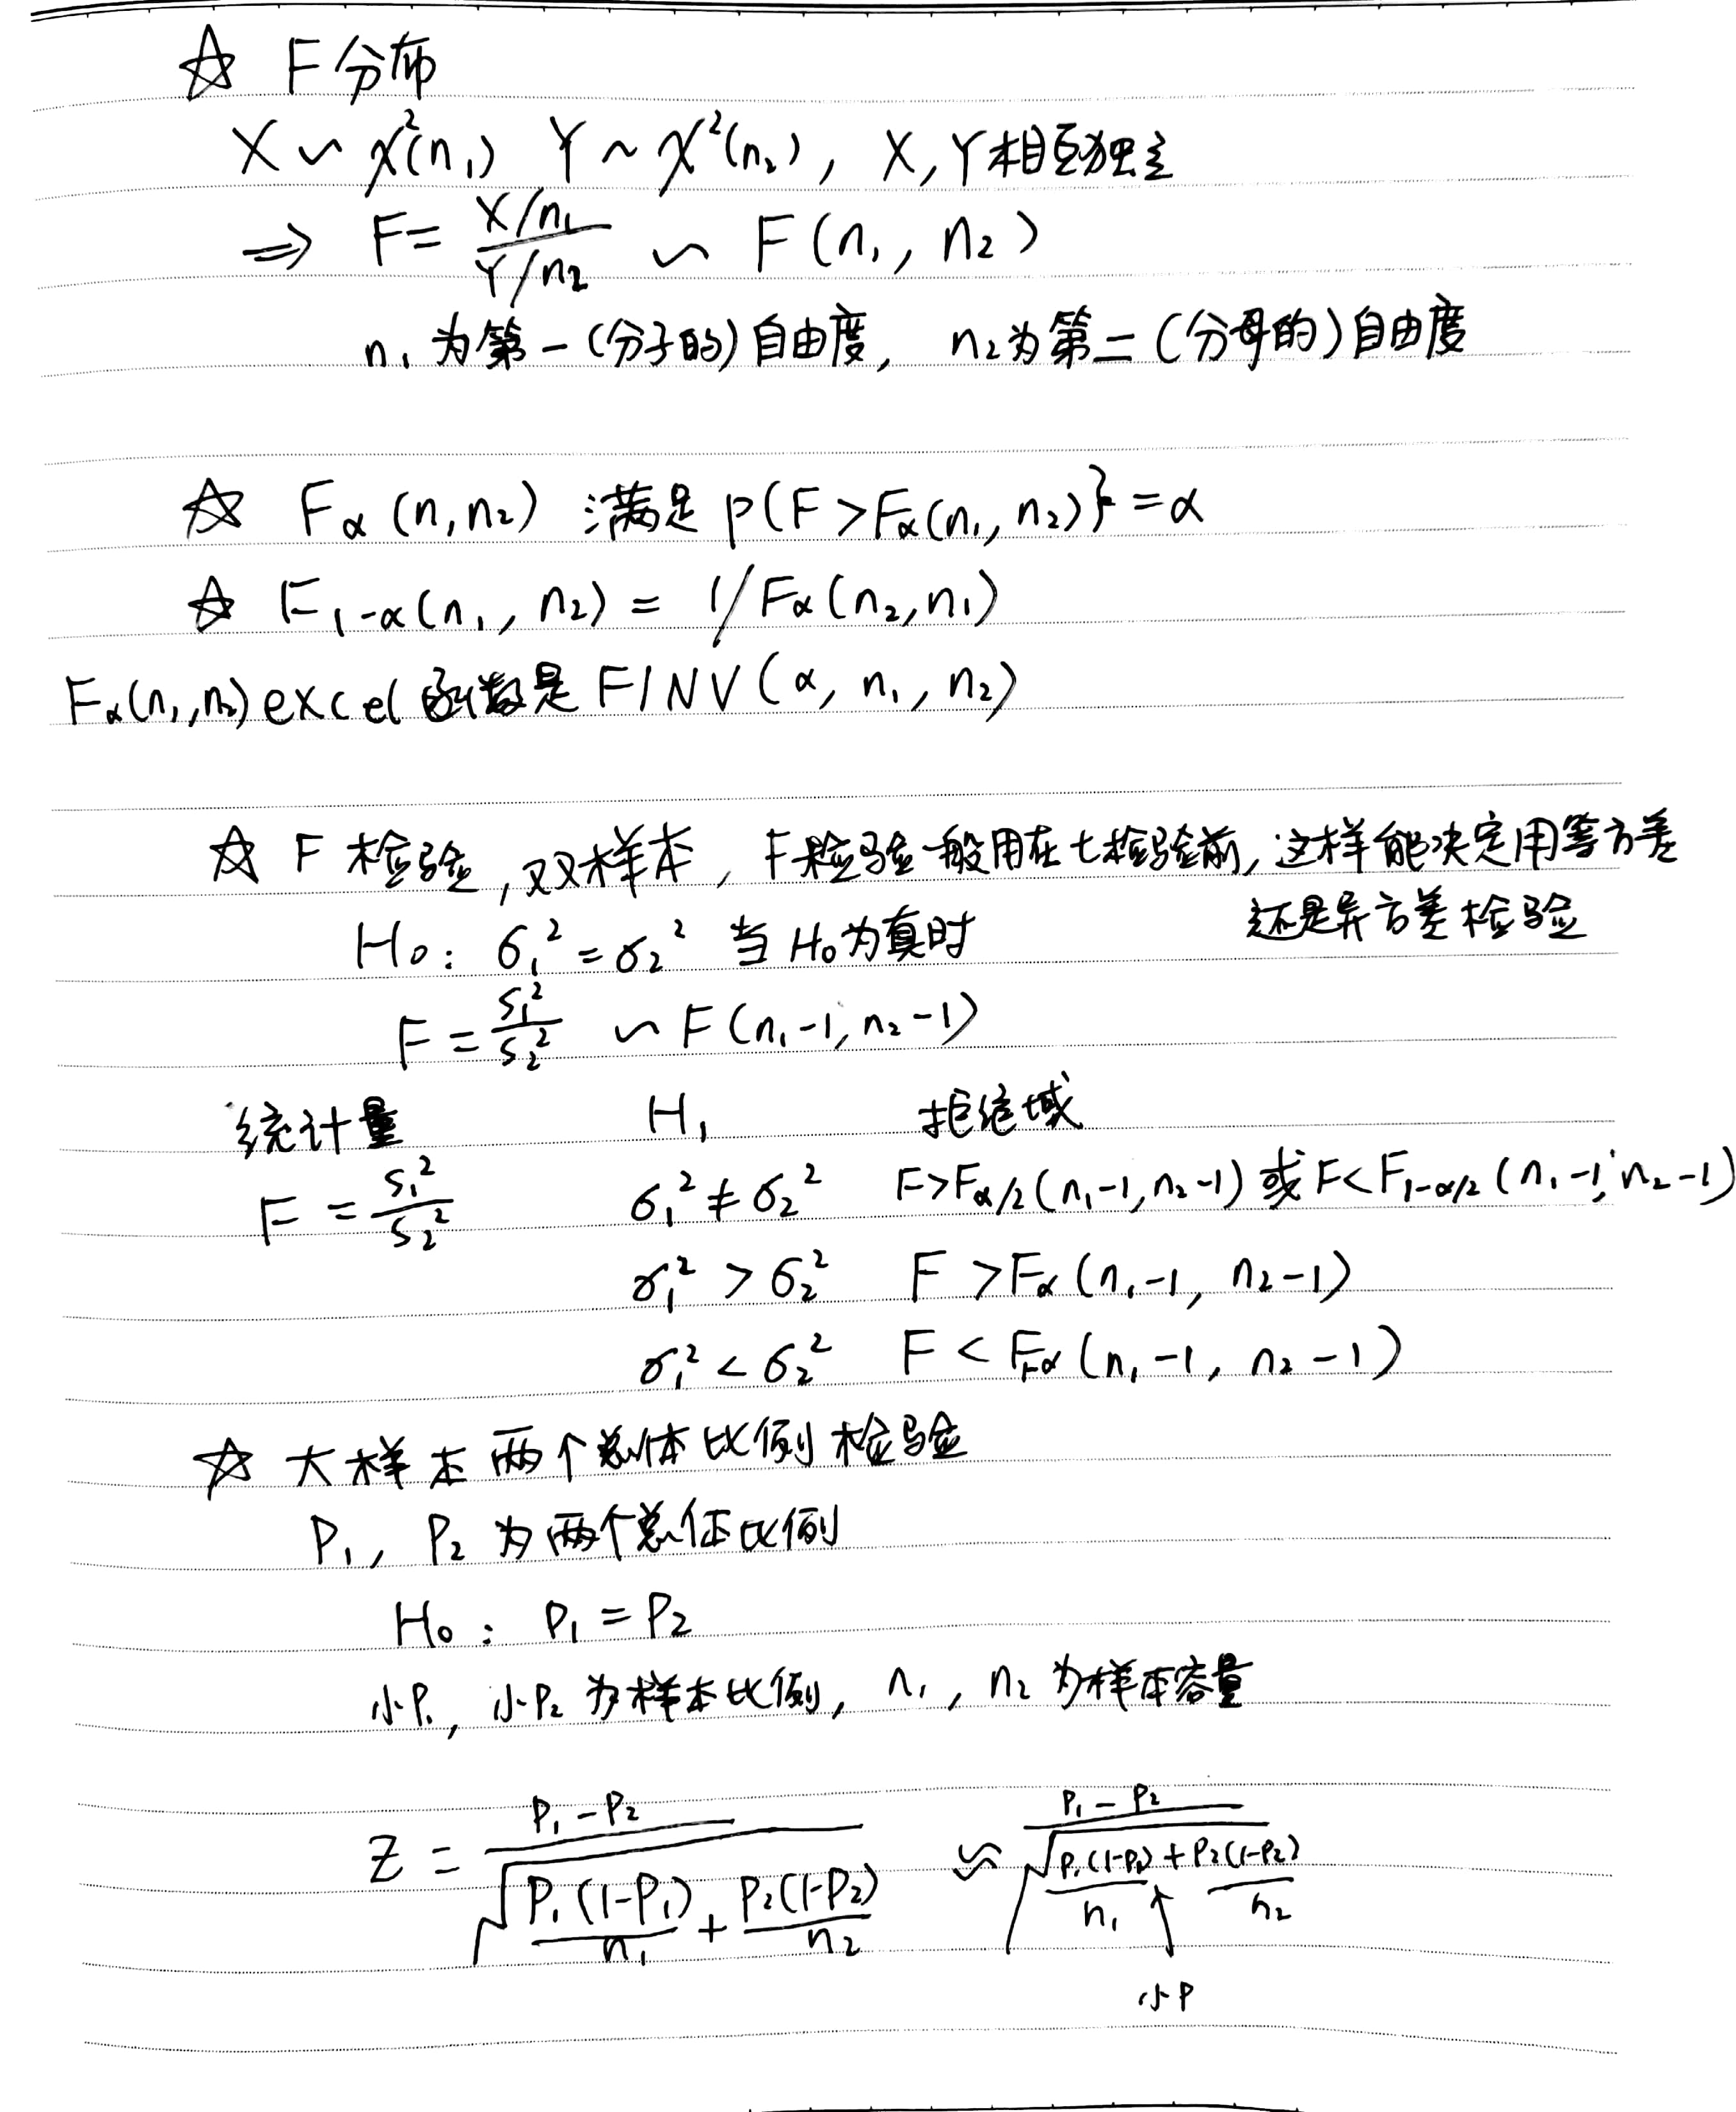 ☆ F分布
X ~ χ²(n₁) Y ~ χ²(n₂), X, Y相互独立
⇒ F = (X/n₁)/(Y/n₂) ~ F(n₁, n₂)
n₁为第一(分子的)自由度, n₂为第二(分母的)自由度
☆ Fα(n,n₂) 满足 p(F>Fα(n₁, n₂)} = α
☆ F₁₋α(n₁, n₂) = 1/Fα(n₂,n₁)
Fα(n₁,n₂) excel 函数是 FINV(α, n₁, n₂)
☆ F 检验, 双样本, F检验一般用在t检验前, 这样能决定用等方差
还是异方差检验
H₀: σ₁² = σ₂² 当H₀为真时
F = S₁²/S₂² ~ F(n₁-1, n₂-1)
统计量 H₁ 拒绝域
F = S₁²/S₂² σ₁² ≠ σ₂² F>F_{α/2}(n₁-1, n₂-1) 或 F<F_{1-α/2}(n₁-1, n₂-1)
σ₁² > σ₂² F >Fα(n₁-1, n₂-1)
σ₁² < σ₂² F < (n₁-1, n₂-1)
☆ 大样本两个总体比例检验
P₁, P₂ 为两个总体比例
H₀: P₁ = P₂
小P₁, 小P₂ 为样本比例, n₁, n₂ 为样本容量
Z = (P₁-P₂)/√(P₁(1-P₁)/n₁ + P₂(1-P₂)/n₂) ≈ (P₁-P₂)/√(P₁(1-P₁)/n₁ + P₂(1-P₂)/n₂)
小P